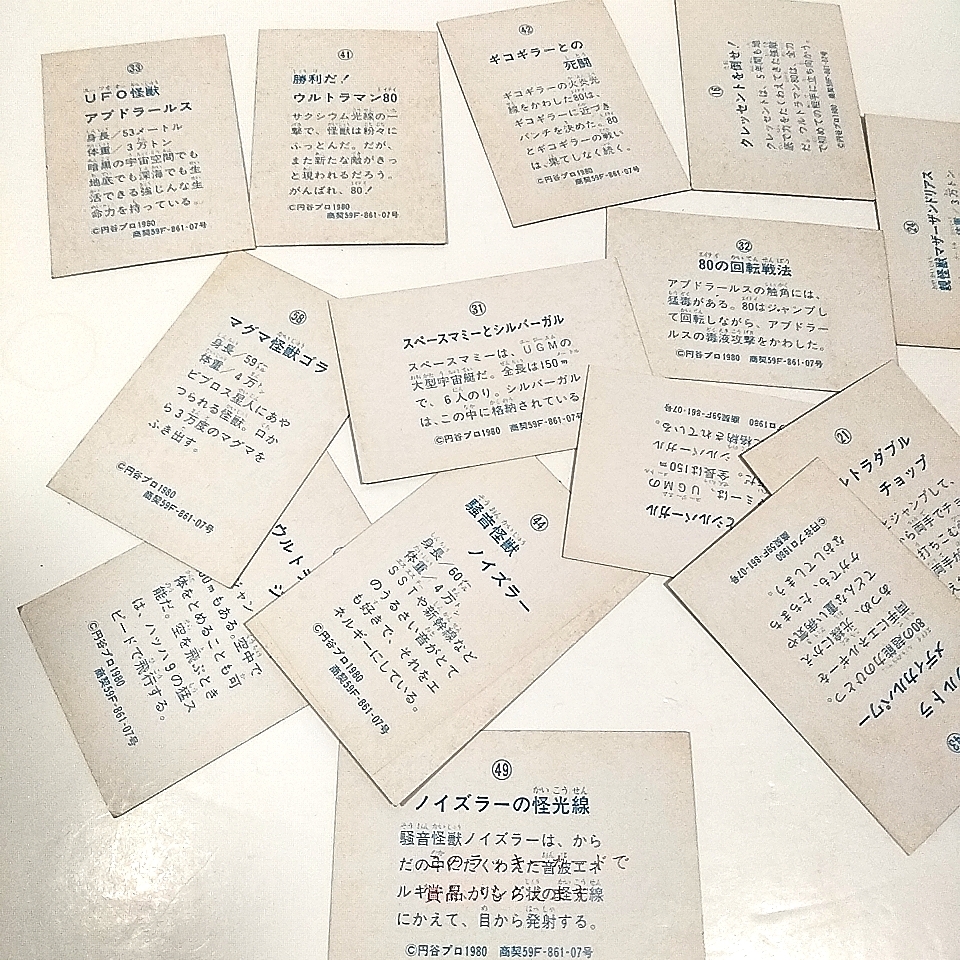 33
UFO怪獣
アブドラールス
身長／53メートル
体重／3万トン
暗黒の宇宙空間でも
地底でも深海でも生
活できる強じんな生
命力を持っている。
©円谷プロ1980
商契59F-861-07号
41
勝利だ！
ウルトラマン80
サクシウム光線の一
撃で、怪獣は粉々に
ふっとんだ。だが、
また新たな敵がきっ
と現われるだろう。
がんばれ、80！
©円谷プロ1980
商契59F-861-07号
42
ギコギラーとの
死闘
ギコギラーの火炎光
線をかわした80は、
ギコギラーに近づき
パンチを決めた。80
とギコギラーの戦い
は、果てしなく続く。
©円谷プロ1980
商契59F-861-07号
16
クレッセントを倒せ！
クレッセントは、5年間も地
底で力をたくわえてきた強敵
だ。ウルトラマン80は、全力
で初めての相手に立ち向かう。
©円谷プロ1980 商契59F-861-07号
24
親怪獣マザーザンドリアス
体重／3万トン
32
80の回転戦法
アブドラールスの触角には、
猛毒がある。80はジャンプし
て回転しながら、アブドラー
ルスの毒液攻撃をかわした。
©円谷プロ1980 商契59F-861-07号
マグマ怪獣ゴラ
身長／59㍍
体重／4万㌧
ビブロス星人にあや
つられる怪獣。口か
ら3万度のマグマを
ふき出す。
©円谷プロ1980
商契59F-861-07号
31
スペースマミーとシルバーガル
スペースマミーは、UGMの
大型宇宙艇だ。全長は150m
で、6人のり。シルバーガル
は、この中に格納されている
©円谷プロ1980 商契59F-861-07号
とシルバーガル
ミーは、UGMの
だ。全長は150m
シルバーガル
格納されている。
プロ1980 商契59F-861-07号
21
ルトラダブル
チョップ
ジャンプして、
ら両手でチョ
43
ウルトラ
メディカルパワー
80の超能力のひとつ。
両手にエネルギーを
あつめ、光線にかえ
てどんな重い病気や
ケガでも、たちまち
なおしてしまう。
©円谷プロ1980
商契59F-861-07号
44
騒音怪獣
ノイズラー
身長／60㍍
体重／4万㌧
SSTや新幹線など
のうるさい音がとて
も好きで、それをエ
ネルギーにしている。
©円谷プロ1980
商契59F-861-07号
ウルトラ
ジャン
0mもある。空中で
体をとめることも可
能だ。空を飛ぶとき
は、マッハ9の怪ス
ピードで飛行する。
©円谷プロ1980
商契59F-861-07号
49
ノイズラーの怪光線
騒音怪獣ノイズラーは、から
だの中にたくわえた音波エネ
ルギーを、リング状の怪光線
にかえて、目から発射する。
©円谷プロ1980 商契59F-861-07号